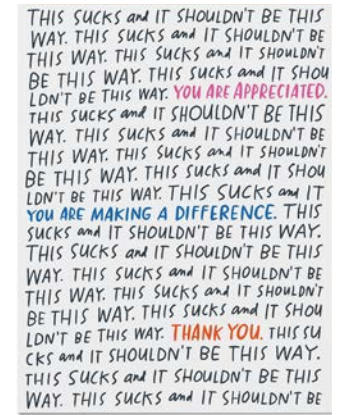 THIS SUCKS and IT SHOULDN'T BE THIS
WAY. THIS SUCKS and IT SHOULDN'T BE
THIS WAY. THIS SUCKS and IT SHOULDN'T
BE THIS WAY. THIS SUCKS and IT SHOU
LDN'T BE THIS WAY. YOU ARE APPRECIATED.
THIS SUCKS and IT SHOULDN'T BE THIS
WAY. THIS SUCKS and IT SHOULDN'T BE
THIS WAY. THIS SUCKS and IT SHOULDN'T
BE THIS WAY. THIS SUCKS and IT SHOU
LDN'T BE THIS WAY. THIS SUCKS and IT
YOU ARE MAKING A DIFFERENCE. THIS
SUCKS and IT SHOULDN'T BE THIS WAY.
THIS SUCKS and IT SHOULDN'T BE THIS
WAY. THIS SUCKS and IT SHOULDN'T BE
THIS WAY. THIS SUCKS and IT SHOULDN'T
BE THIS WAY. THIS SUCKS and IT SHOU
LDN'T BE THIS WAY. THANK YOU. THIS SU
CKS and IT SHOULDN'T BE THIS WAY.
THIS SUCKS and IT SHOULDN'T BE THIS
WAY. THIS SUCKS and IT SHOULDN'T BE